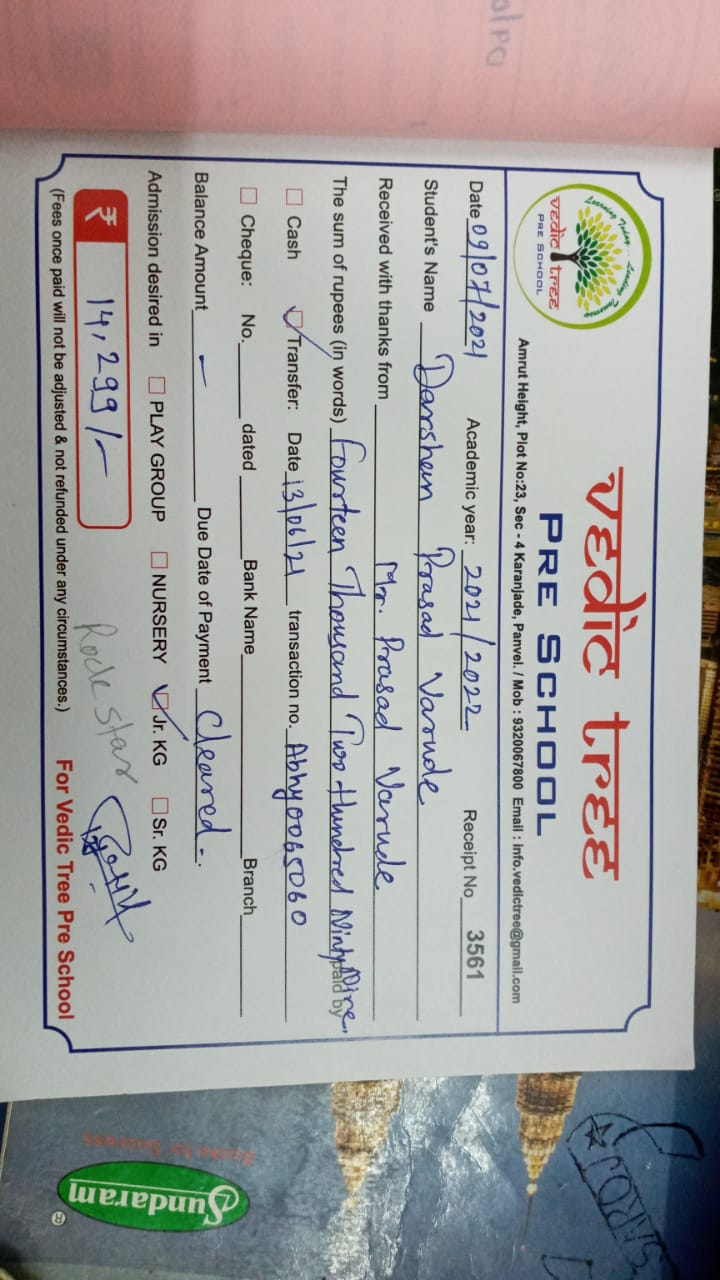 Learning Today... Leading Tomorrow
vedic tree
PRE SCHOOL
vedic tree
PRE SCHOOL
Amrut Height, Plot No:23, Sec - 4 Karanjade, Panvel. / Mob : 9320067800 Email : info.vedictree@gmail.com
Date 09/07/2021 Academic year: 2021/2022 Receipt No 3561
Student's Name Darshan Prasad Varude
Received with thanks from Mr. Prasad Varude
The sum of rupees (in words) Fourteen Thousand Two Hundred Ninty Nine. paid by
Cash Transfer: Date 13/06/21 transaction no. Abhy0065060
Cheque: No. dated Bank Name Branch
Balance Amount - Due Date of Payment Cleared-.
Admission desired in PLAY GROUP NURSERY Jr. KG Sr. KG
₹ 14,299/-
Rock Star
(Fees once paid will not be adjusted & not refunded under any circumstances.) For Vedic Tree Pre School
Sundaram
SAROJ